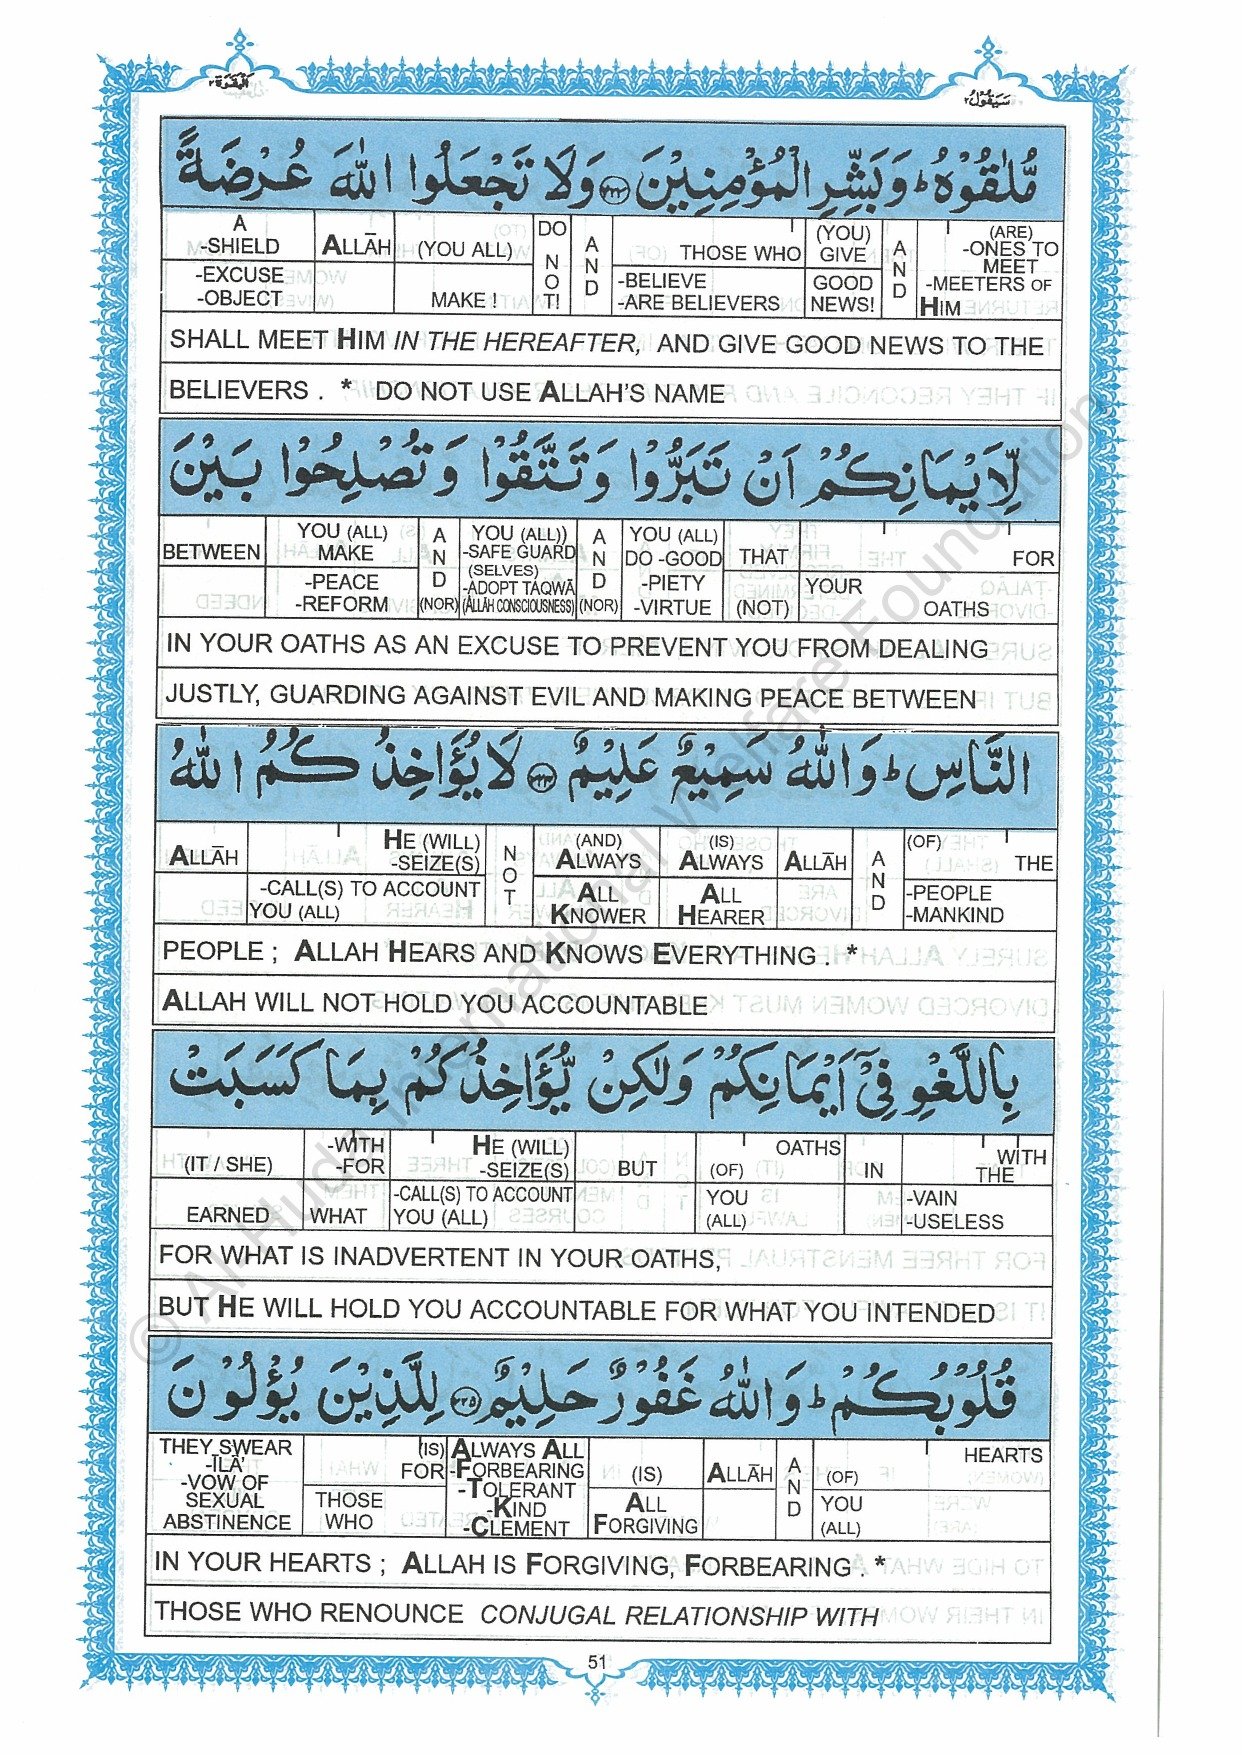 البقرة ٢
سيقول ٢
مُّلٰقُوْهُ ؕ وَ بَشِّرِ الْمُؤْمِنِيْنَ ۝۲۲۳ وَلَا تَجْعَلُوا اللّٰهَ عُرْضَةً
A -SHIELD ALLĀH (YOU ALL) DO NOT! AND THOSE WHO (YOU) GIVE AND (ARE) -ONES TO MEET
-EXCUSE -OBJECT MAKE ! -BELIEVE -ARE BELIEVERS GOOD NEWS! -MEETERS OF HIM
SHALL MEET HIM IN THE HEREAFTER, AND GIVE GOOD NEWS TO THE
BELIEVERS . * DO NOT USE ALLAH'S NAME
لِّاَيْمَانِكُمْ اَنْ تَبَرُّوْا وَ تَتَّقُوْا وَ تُصْلِحُوْا بَيْنَ
BETWEEN YOU (ALL) MAKE AND YOU (ALL)) -SAFE GUARD (SELVES) AND YOU (ALL) DO -GOOD THAT FOR
-PEACE -REFORM (NOR) -ADOPT TAQWĀ (ALLĀH CONSCIOUSNESS) (NOR) -PIETY -VIRTUE (NOT) YOUR OATHS
IN YOUR OATHS AS AN EXCUSE TO PREVENT YOU FROM DEALING
JUSTLY, GUARDING AGAINST EVIL AND MAKING PEACE BETWEEN
النَّاسِ ؕ وَ اللّٰهُ سَمِيْعٌ عَلِيْمٌ ۝۲۲۴ لَا يُؤَاخِذُ كُمُ اللّٰهُ
ALLĀH HE (WILL) -SEIZE(S) NOT (AND) ALWAYS (IS) ALWAYS ALLĀH AND (OF) THE
-CALL(S) TO ACCOUNT YOU (ALL) ALL KNOWER ALL HEARER -PEOPLE -MANKIND
PEOPLE ; ALLAH HEARS AND KNOWS EVERYTHING . *
ALLAH WILL NOT HOLD YOU ACCOUNTABLE
بِاللَّغْوِ فِىْٓ اَيْمَانِكُمْ وَلٰكِنْ يُّؤَاخِذُكُمْ بِمَا كَسَبَتْ
(IT / SHE) -WITH -FOR HE (WILL) -SEIZE(S) BUT OATHS (OF) IN WITH THE
EARNED WHAT -CALL(S) TO ACCOUNT YOU (ALL) YOU (ALL) -VAIN -USELESS
FOR WHAT IS INADVERTENT IN YOUR OATHS,
BUT HE WILL HOLD YOU ACCOUNTABLE FOR WHAT YOU INTENDED
قُلُوْبُكُمْ ؕ وَ اللّٰهُ غَفُوْرٌ حَلِيْمٌ ۝۲۲۵ لِلَّذِيْنَ يُؤْلُوْنَ
THEY SWEAR -ĪLĀ' -VOW OF SEXUAL ABSTINENCE (IS) FOR ALWAYS ALL -FORBEARING -TOLERANT -KIND -CLEMENT (IS) ALLĀH AND (OF) HEARTS
THOSE WHO ALL FORGIVING YOU (ALL)
IN YOUR HEARTS ; ALLAH IS FORGIVING, FORBEARING . *
THOSE WHO RENOUNCE CONJUGAL RELATIONSHIP WITH
51
© Al-Huda International Welfare Foundation